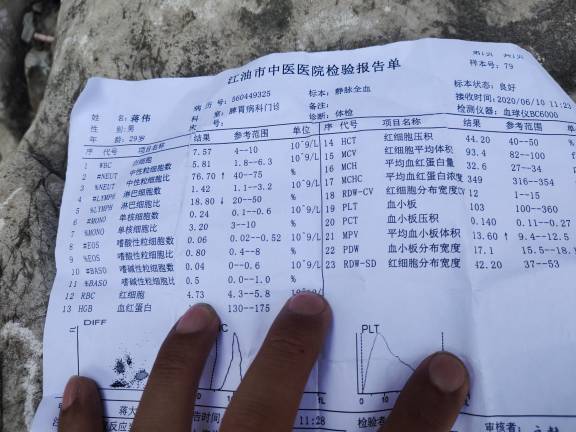 江油市中医医院检验报告单
样本号：79
姓 名：蒋伟
性 别：男
年 龄：29岁
病 历 号：560449325
科 室：脾胃病科门诊
标本：静脉全血
备注：
诊断：体检
标本状态：良好
接收时间：2020/06/10 11:23
检测仪器：血球仪BC6000
序 代号 项目名称 结果 参考范围 单位
1 WBC 7.57 4--10 10^9/L
2 #NEUT 中性粒细胞数 5.81 1.8--6.3 10^9/L
3 %NEUT 中性粒细胞比 76.70 ↑ 40--75 %
4 #LYMPH 淋巴细胞数 1.42 1.1--3.2 10^9/L
5 %LYMPH 淋巴细胞比 18.80 ↓ 20--50 %
6 #MONO 单核细胞数 0.24 0.1--0.6 10^9/L
7 %MONO 单核细胞比 3.20 3--10 %
8 #EOS 嗜酸性粒细胞数 0.06 0.02--0.52 10^9/L
9 %EOS 嗜酸性粒细胞比 0.80 0.4--8 %
10 #BASO 嗜碱性粒细胞数 0.04 0--0.6 10^9/L
11 %BASO 嗜碱性粒细胞比 0.5 0.0--1.0 %
12 RBC 红细胞 4.73 4.3--5.8
13 HGB 血红蛋白 130--175
序 代号 项目名称 结果 参考范围
14 HCT 红细胞压积 44.20 40--50 %
15 MCV 红细胞平均体积 93.4 82--100
16 MCH 平均血红蛋白量 32.6 27--34
17 MCHC 平均血红蛋白浓度 349 316--354
18 RDW-CV 红细胞分布宽度 12 1--15
19 PLT 血小板 103 100--360
20 PCT 血小板压积 0.140 0.11--0.27
21 MPV 平均血小板体积 13.60 ↑ 9.4--12.5
22 PDW 血小板分布宽度 17.1 15.5--18.
23 RDW-SD 红细胞分布宽度 42.20 37--53
DIFF
PLT
11:28
检验者
审核者：